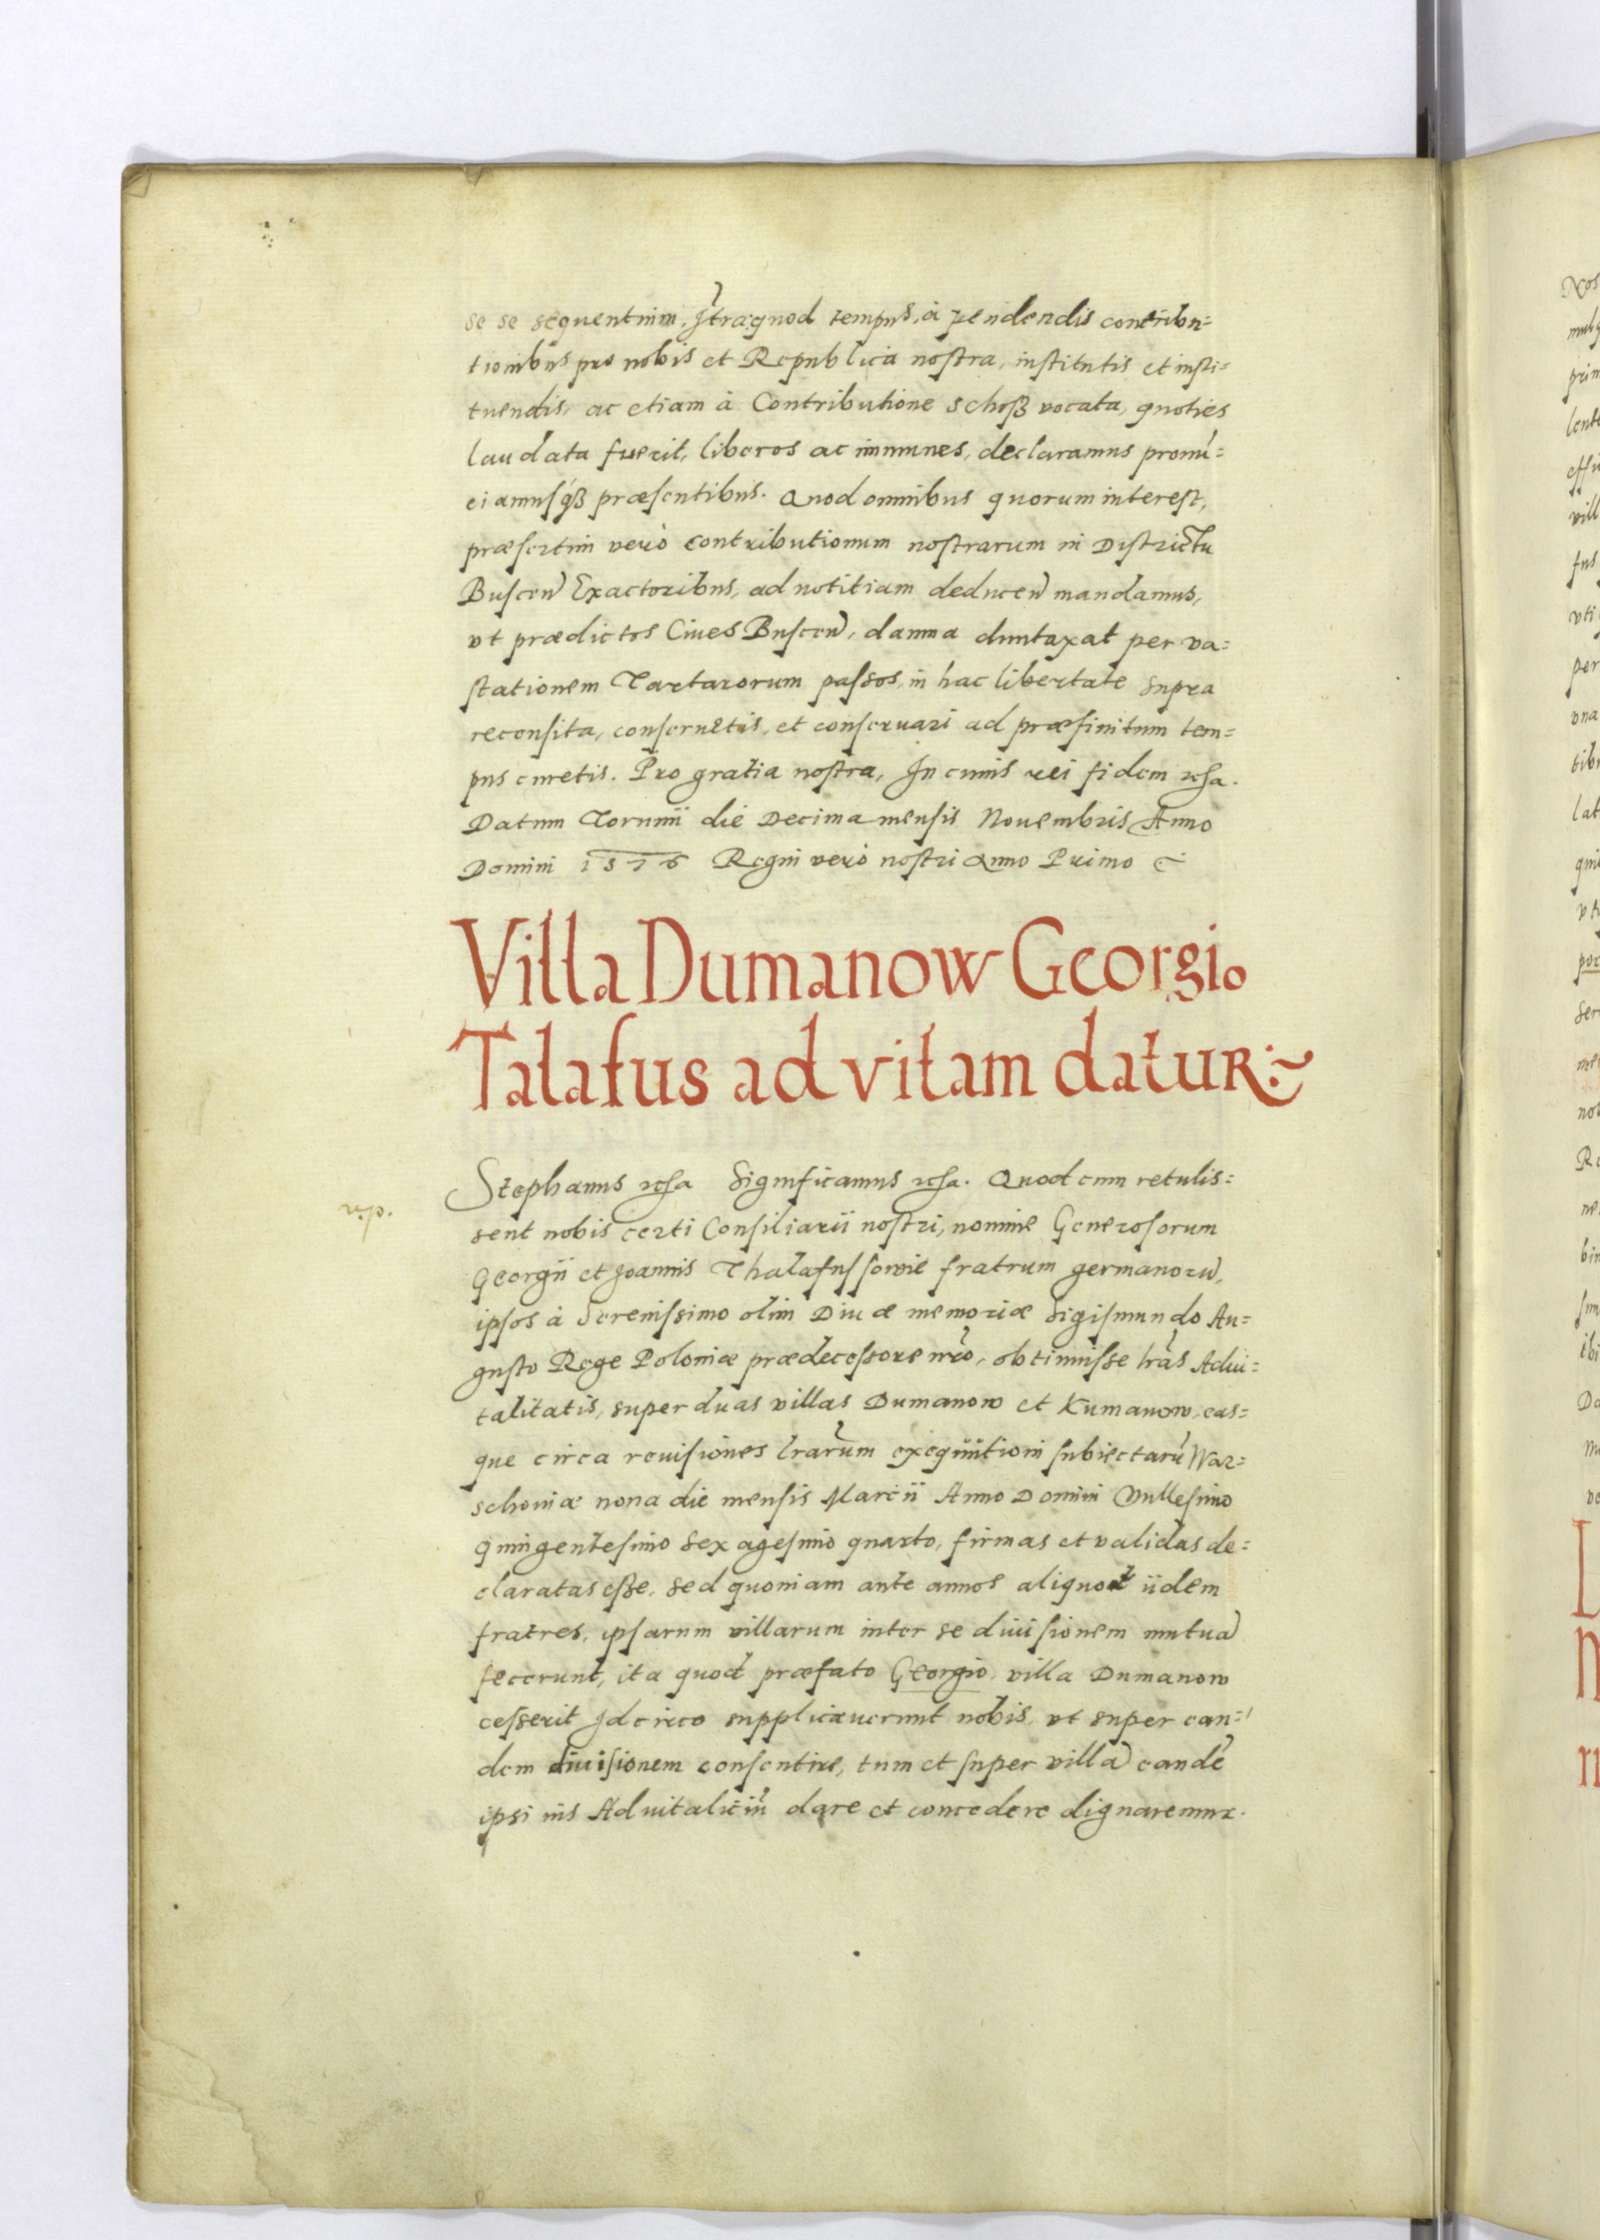 se se sequentium, Jtra quod tempus, à pendendis contribu=
tionibus pro nobis et Republica nostra, institutis et insti=
tuendis, ac etiam à Contributione schoß vocata, quoties
laudata fuerit, liberos ac immunes, declaramus pronũ=
ciamusqß præsentibus. Quod omnibus quorum interest,
præsertim verò contributionum nostrarum in Districtu
Buscen Exactoribus, ad notitiam deducen mandamus,
vt prædictos Ciues Buscen, damna duntaxat per va=
stationem Tartarorum passos, in hac libertate supra
recensita, conseruetis, et conseruari ad præfinitum tem=
pus curetis. Pro gratia nostra, In cuius rei fidem
Datum Torunii die Decima mensis Nouembris Anno
Domini 1576 Regni verò nostri Anno Primo
Villa Dumanow Georgio
Talafus ad vitam datur
Stephanus Significamus Quod cum retulis=
sent nobis certi Consiliarii nostri, nomine Generosorum
Georgii et Joannis Thalafussowie fratrum germanorũ,
ipsos à Serenissimo olim Diuæ memoriæ Sigismundo Au=
gusto Rege Poloniæ prædecessore nrõ, obtinuisse lrãs Adui=
talitatis, super duas villas Dumanow et Kumanow, eas=
que circa reuisiones lrarũm exequutioni subiectarũ War=
schouiæ nona die mensis Marcii Anno Domini Millesimo
quingentesimo sexagesimo quarto, firmas et validas de=
claratas esse, sed quoniam ante annos aliquot iidem
fratres, ipsarum villarum inter se diuisionem mutuã
fecerunt, ita quod præfato Georgio, villa Dumanow
cesserit Jdcirco supplicauerunt nobis, vt super ean=
dem diuisionem consentire, tum et super villã eandẽ
ipsi ius Aduitaliciũ dare et concedere dignaremur.